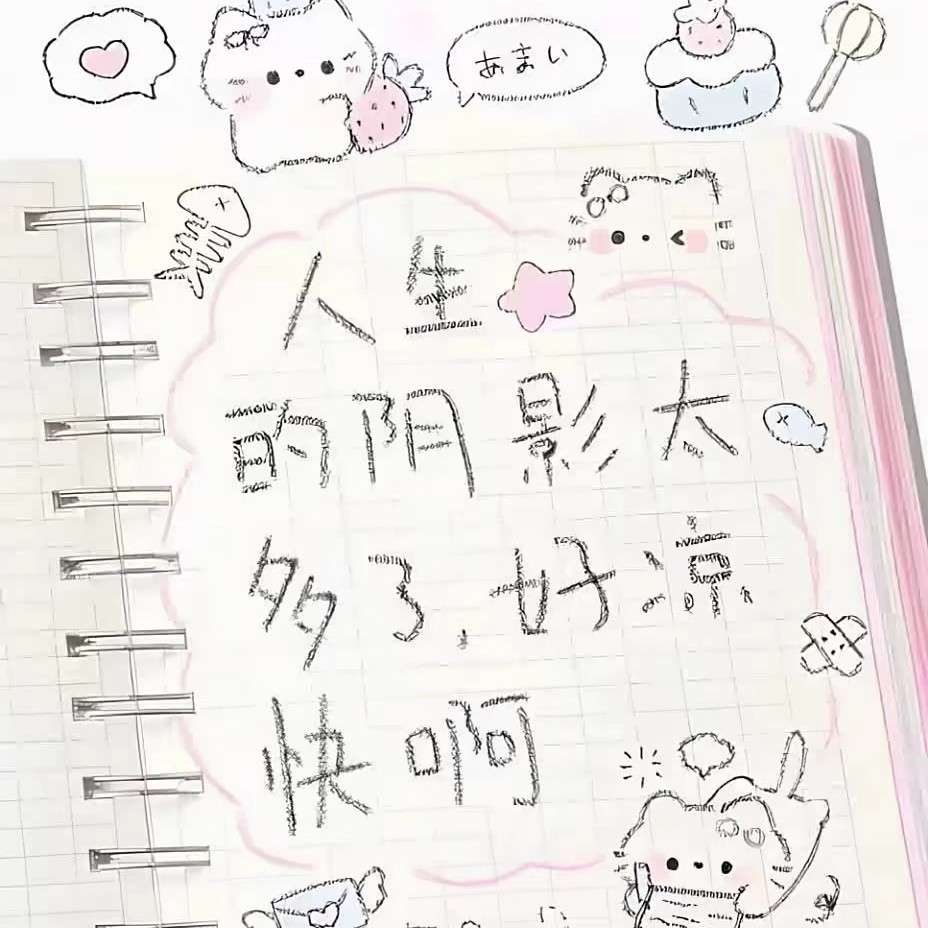 あまい
人生
的阴影太
多了,好凉
快啊